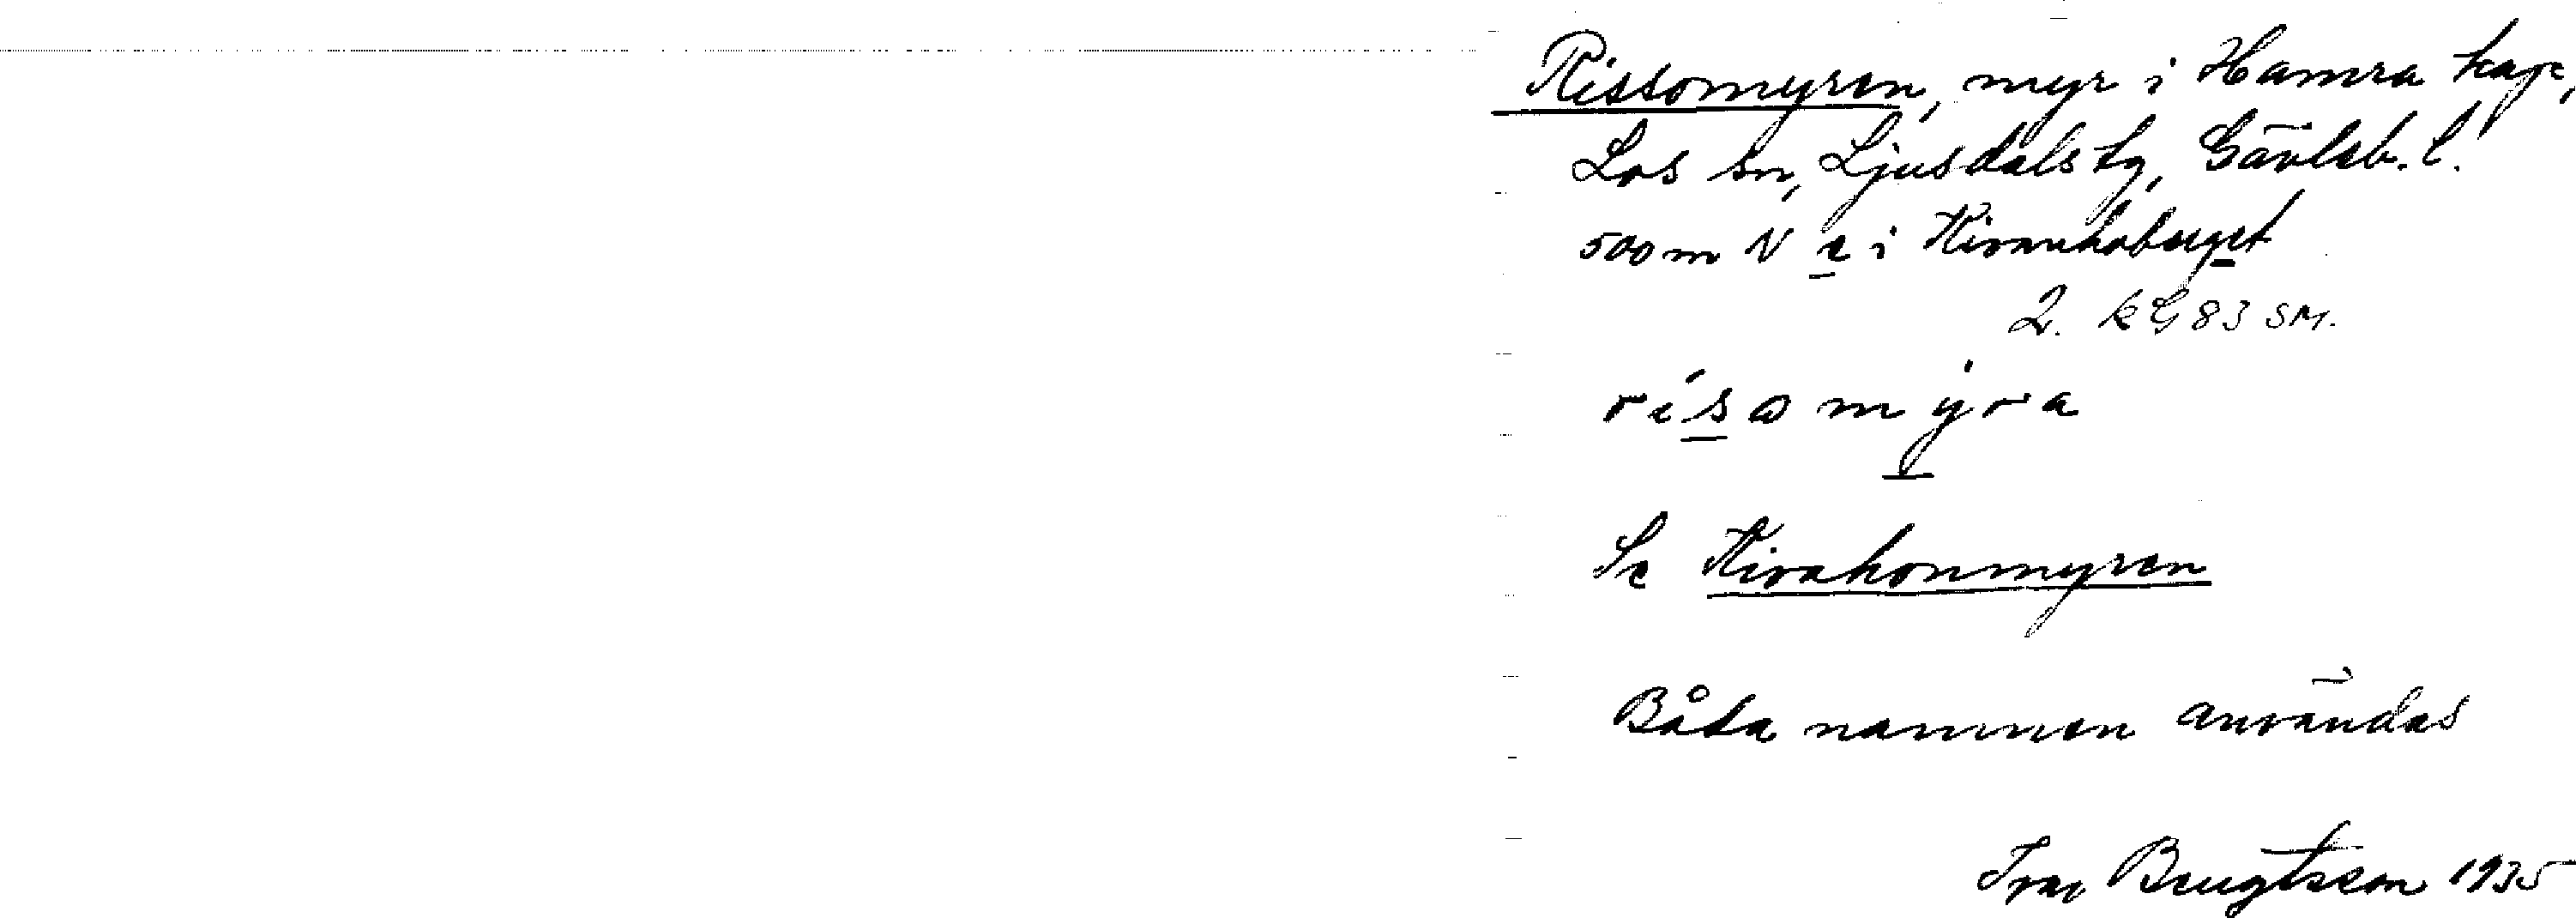 Rissomyren, myr i Hamra kap,
Los sn, Ljusdals tg, Gävleb. l.
500 m N e i Kivanhoberget
2. k G 83 SM.
risomyra
Se Kivahonmyren
Båda namnen användas
Bengtsson 1935